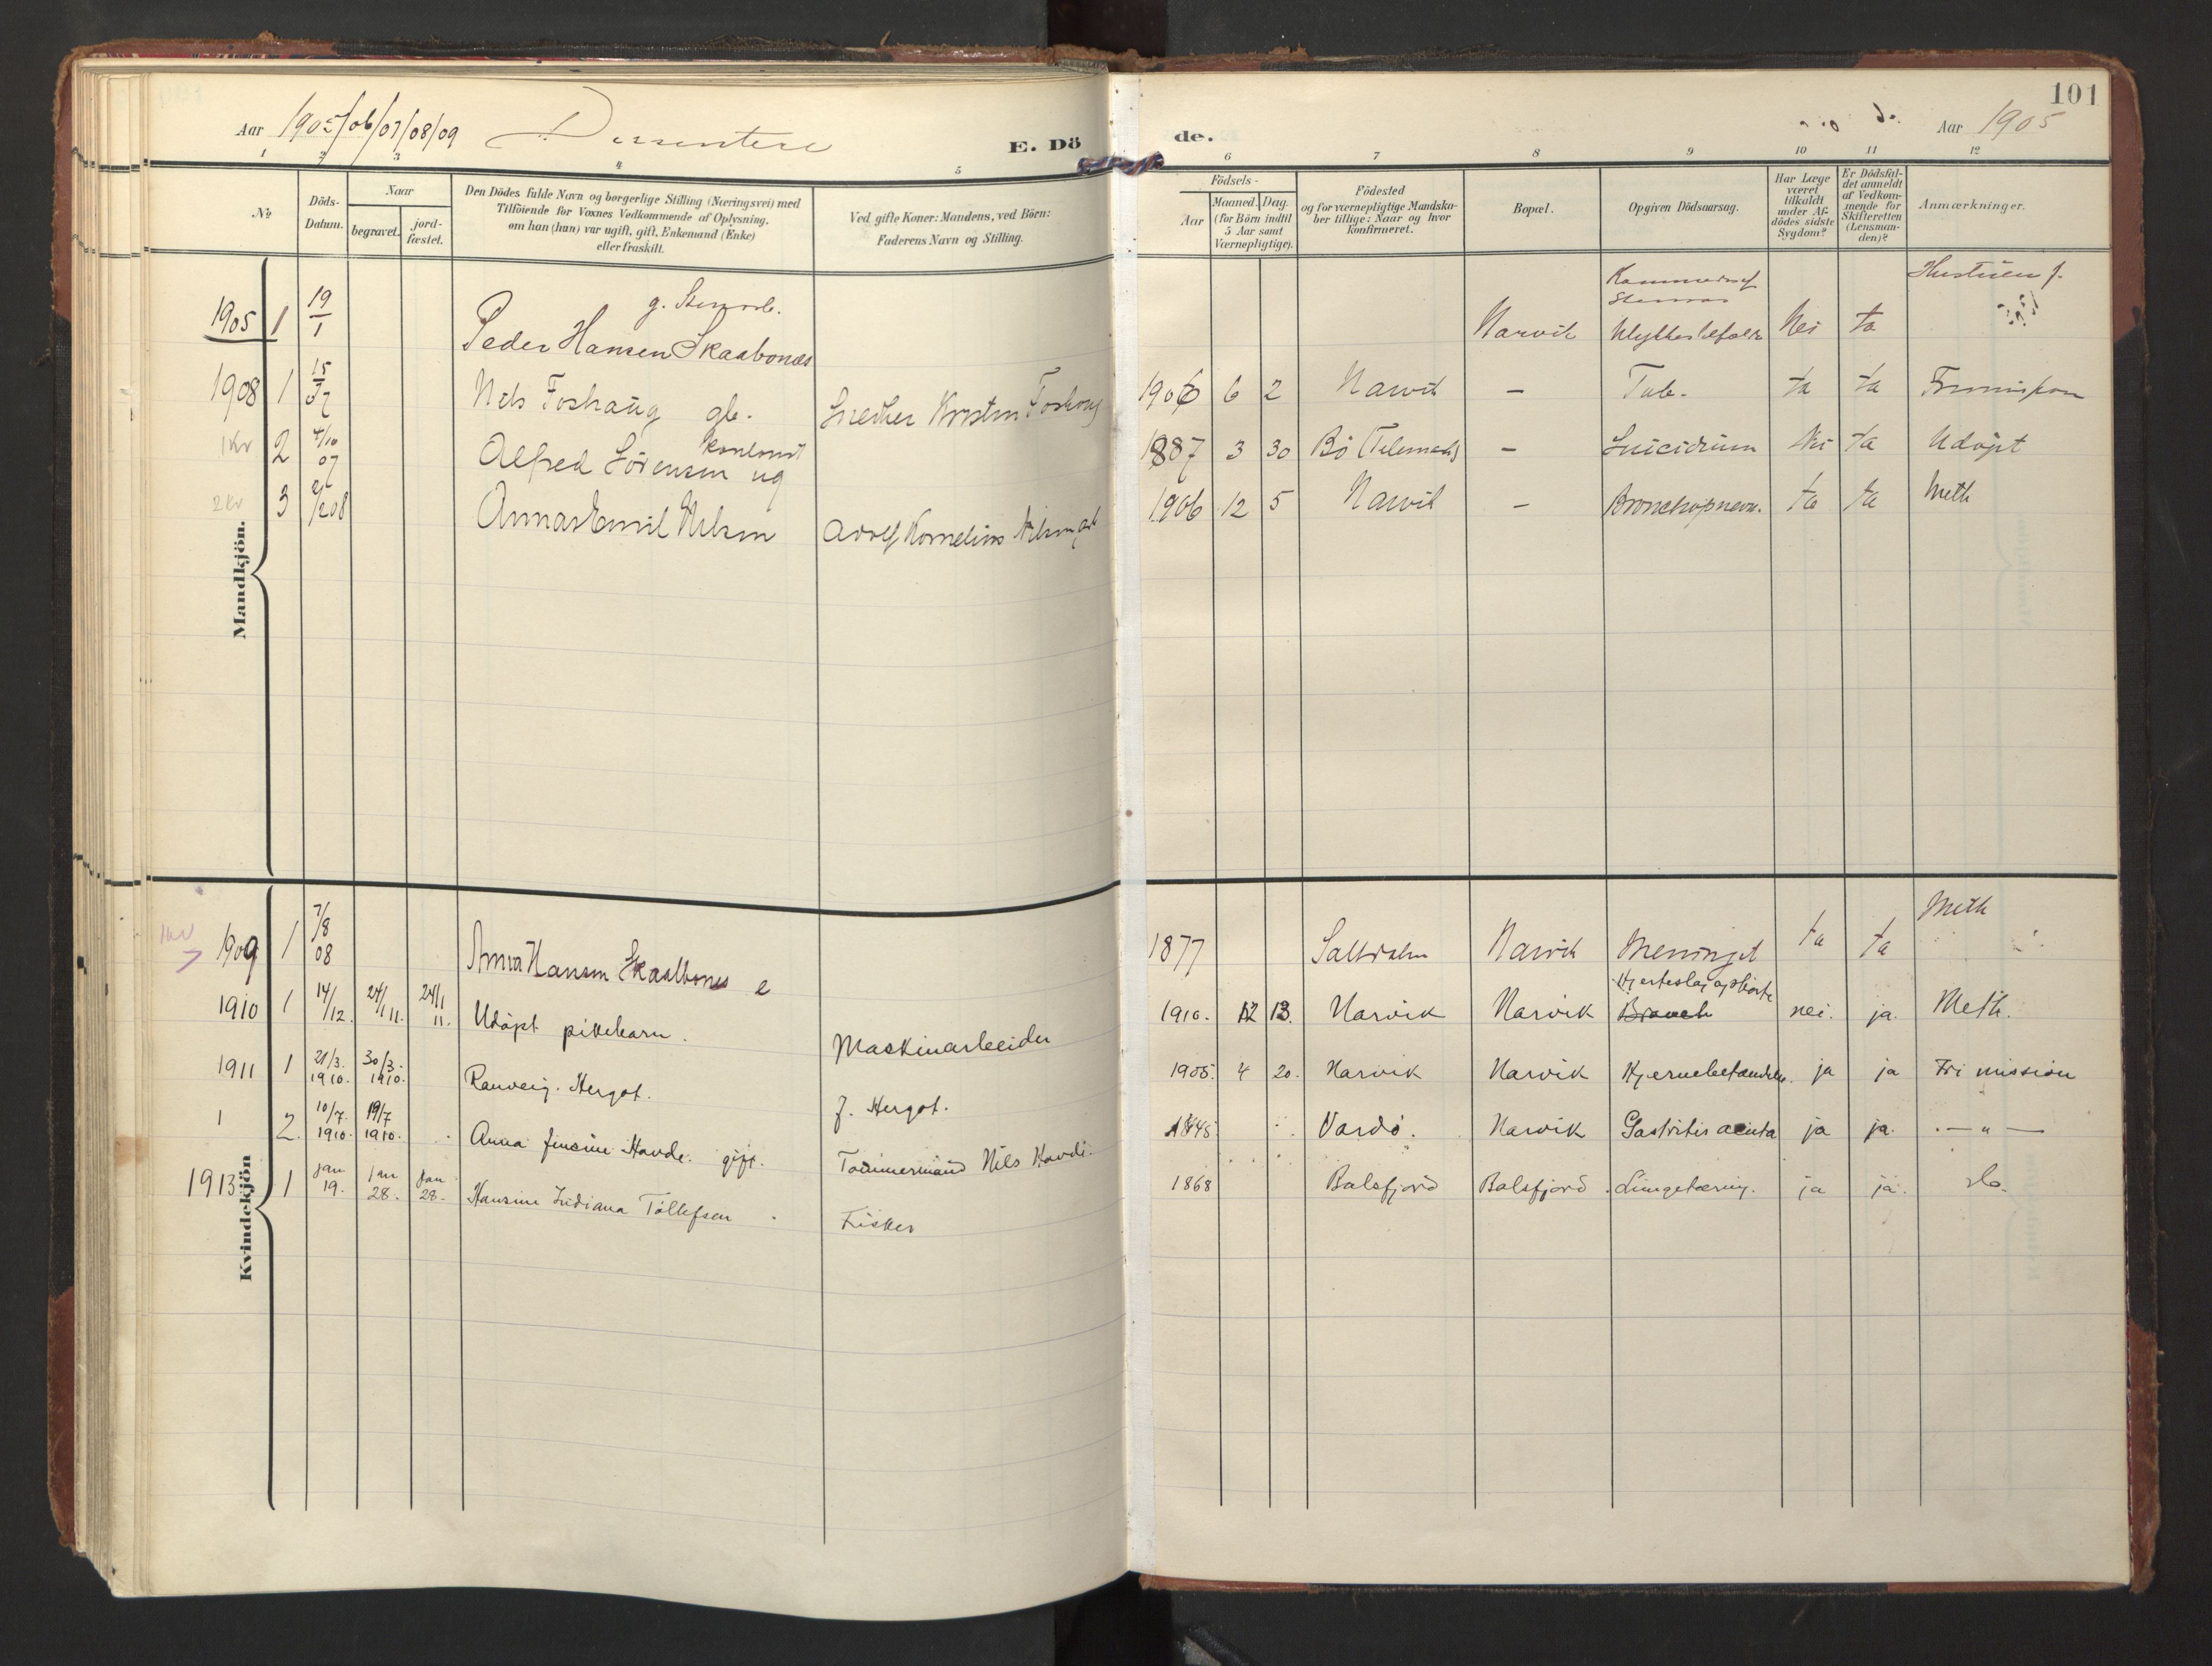 101
Aar 1905/06/07/08/09 Dissentere E. Dö
de. Aar 1905
1 2 3 4 5
6 7 8 9 10 11 12
№
Döds-
Datum.
Naar
begravet.
jord-
fæstet.
Den Dödes fulde Navn og borgerlige Stilling (Næringsvei) med
Tilföiende for Voxnes Vedkommende af Oplysning,
om han (hun) var ugift, gift, Enkemand (Enke)
eller fraskilt.
Ved gifte Koner: Mandens, ved Börn:
Faderens Navn og Stilling.
Födsels-
Aar
Maaned. Dag.
(for Börn indtil
5 Aar samt
Værnepligtige).
Födested
og for værnepligtige Mandska-
ber tillige: Naar og hvor
konfirmeret.
Bopæl.
Opgiven Dödsaarsag.
Har Læge
været
tilkaldt
under Af-
dödes sidste
Sygdom?
Er Dödsfal-
det anmeldt
af Vedkom-
mende for
Skifteretten
(Lensman-
den)?
Anmærkninger.
Mandkjön.
1905 1 19/1 g. Peder Hansen Skaabones Narvik Ulykkestilfælde Nei Ja
1908 1 15 07 Nils Foshaug gb. Foshaug 1906 6 2 Narvik – Tub. Ja Ja Frimisjon
1kv 2 4/10 07 Alfred Sörensen ug 1887 3 30 Bö (Telemark) – Suicidium Nei Ja Udöpt
2kv 3 /208 Emil Nilsen Adolf Kornelius Nilsen 1906 12 5 Narvik – Bronchopneum. Ja Ja Meth
Kvindekjön
1kv
1909 1 7/8 08 Anna Hansen Skaalbones e 1877 Saltdalen Narvik Meningit Ja Ja Meth
1910 1 14/12. 24/1 11. 24/1 11. Udöpt pikebarn. Maskinarbeider 1910. 12 13. Narvik Narvik Hjerteslag nei. ja. Meth.
1911 1 21/3. 1910. 30/3. 1910. Ranveig. Hergot. J. Hergot. 1905. 4 20. Narvik Narvik Hjernebetændelse. ja ja Fri mission
1 2. 10/7. 1910. 19/7 1910. Anna Jensine Havde. gift. Tömmermand Nils Havde. 1845 Vardö. Narvik Gastritis acuta ja ja. – „ –
1913 1 Jan 19. Jan 28. Jan 28. Hansine Indiana Tollefsen. Fisker 1868 Balsfjord Balsfjord. Lungetæring. ja ja. do.